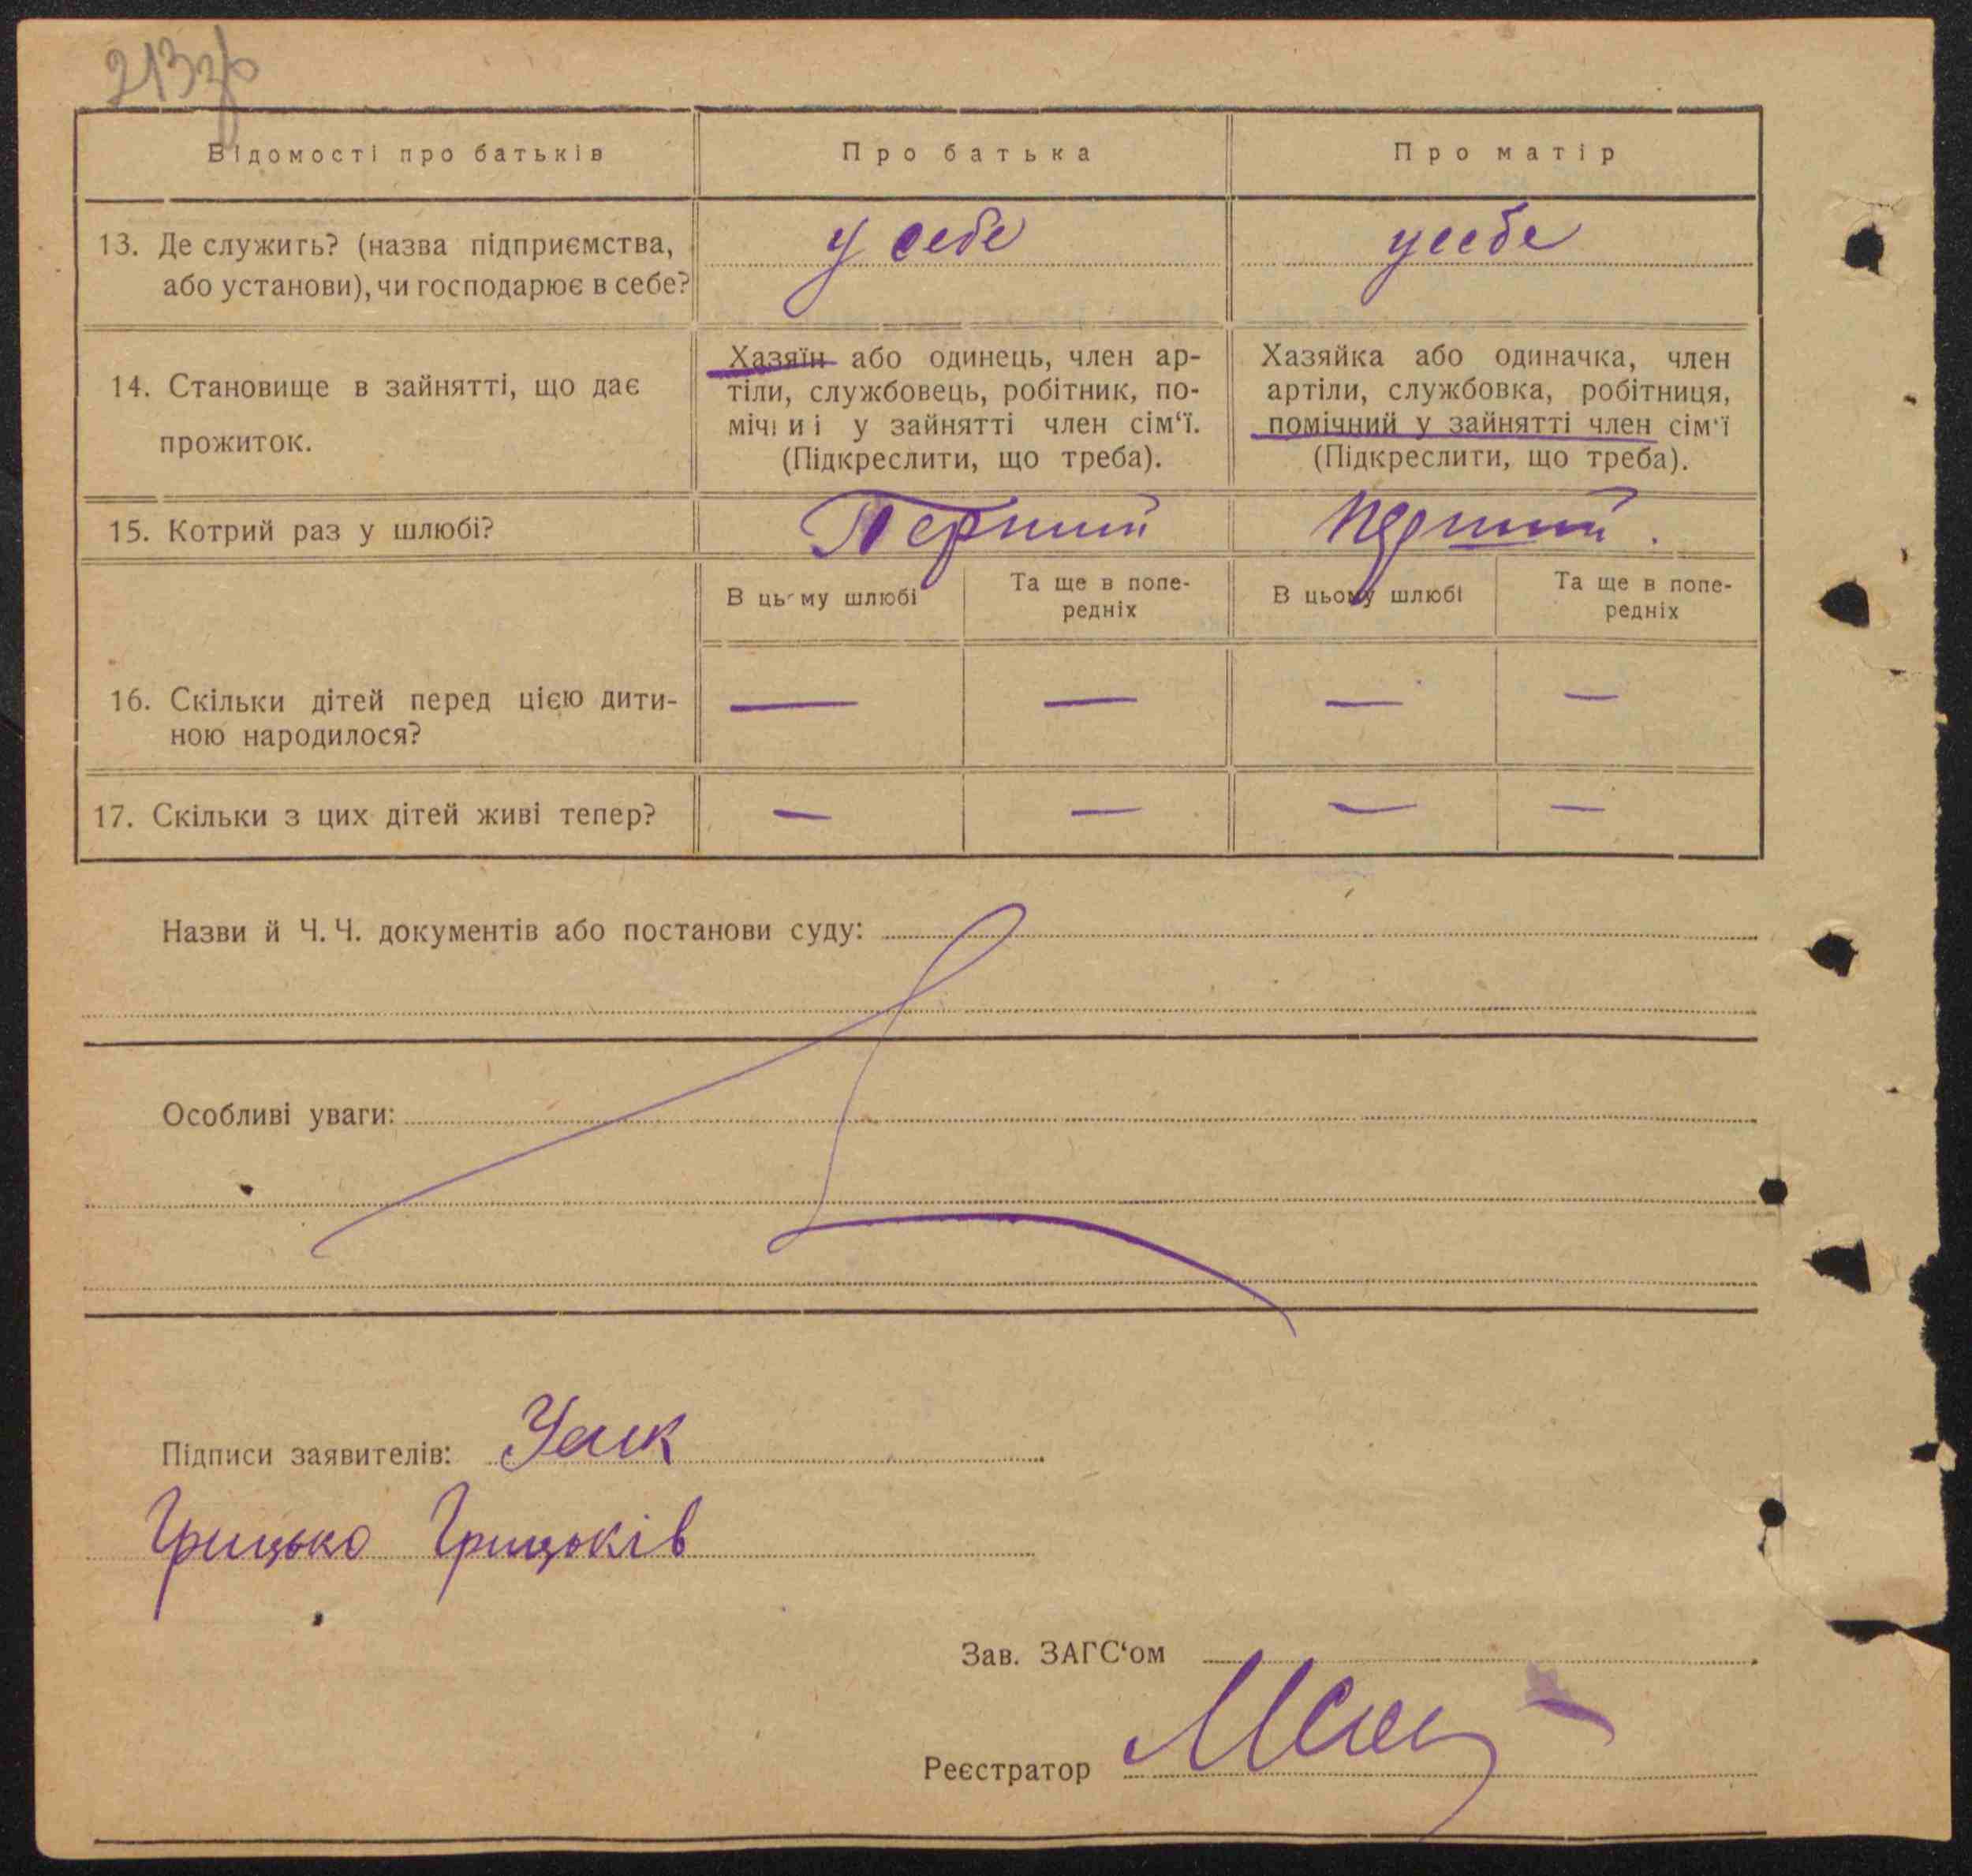 213зв
Відомості про батьків
Про батька
Про матір
13. Де служить? (назва підприємства,
або установи), чи господарює в себе?
у себе
у себе
14. Становище в зайнятті, що дає
прожиток.
Хазяїн або одинець, член ар-
тіли, службовець, робітник, по-
мічний у зайнятті член сім‘ї.
(Підкреслити, що треба).
Хазяйка або одиначка, член
артіли, службовка, робітниця,
помічний у зайнятті член сім‘ї
(Підкреслити, що треба).
15. Котрий раз у шлюбі?
Перший
перший.
В цьому шлюбі
Та ще в попе-
редніх
В цьому шлюбі
Та ще в попе-
редніх
16. Скільки дітей перед цією дити-
ною народилося?
— — — —
17. Скільки з цих дітей живі тепер?
— — — —
Назви й Ч. Ч. документів або постанови суду:
Особливі уваги:
Підписи заявителів:
Грицько Грицьків
Зав. ЗАГС‘ом
Реєстратор